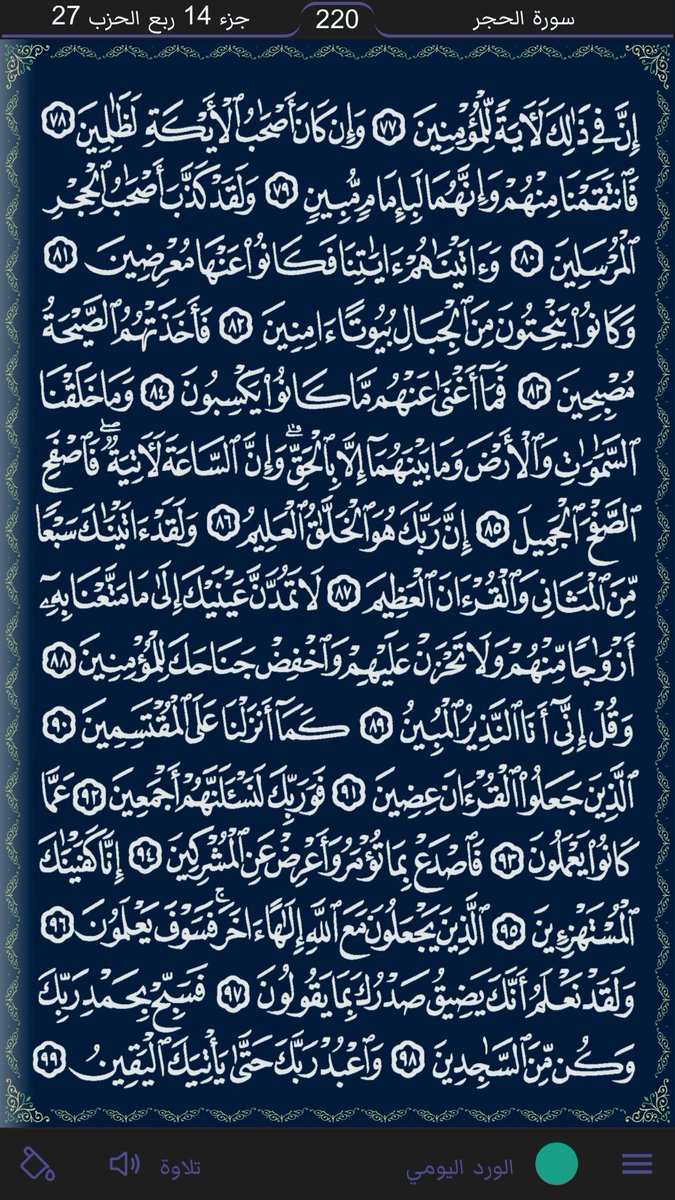 سورة الحجر 220 جزء 14 ربع الحزب 27
إِنَّ فِي ذَٰلِكَ لَءَايَةً لِّلْمُؤْمِنِينَ ٧٧ وَإِن كَانَ أَصْحَٰبُ ٱلْأَيْكَةِ لَظَٰلِمِينَ ٧٨
فَٱنتَقَمْنَا مِنْهُمْ وَإِنَّهُمَا لَبِإِمَامٍ مُّبِينٍ ٧٩ وَلَقَدْ كَذَّبَ أَصْحَٰبُ ٱلْحِجْرِ
ٱلْمُرْسَلِينَ ٨٠ وَءَاتَيْنَٰهُمْ ءَايَٰتِنَا فَكَانُوا۟ عَنْهَا مُعْرِضِينَ ٨١
وَكَانُوا۟ يَنْحِتُونَ مِنَ ٱلْجِبَالِ بُيُوتًا ءَامِنِينَ ٨٢ فَأَخَذَتْهُمُ ٱلصَّيْحَةُ
مُصْبِحِينَ ٨٣ فَمَآ أَغْنَىٰ عَنْهُم مَّا كَانُوا۟ يَكْسِبُونَ ٨٤ وَمَا خَلَقْنَا
ٱلسَّمَٰوَٰتِ وَٱلْأَرْضَ وَمَا بَيْنَهُمَآ إِلَّا بِٱلْحَقِّ ۗ وَإِنَّ ٱلسَّاعَةَ لَءَاتِيَةٌ ۖ فَٱصْفَحِ
ٱلصَّفْحَ ٱلْجَمِيلَ ٨٥ إِنَّ رَبَّكَ هُوَ ٱلْخَلَّٰقُ ٱلْعَلِيمُ ٨٦ وَلَقَدْ ءَاتَيْنَٰكَ سَبْعًا
مِّنَ ٱلْمَثَانِي وَٱلْقُرْءَانَ ٱلْعَظِيمَ ٨٧ لَا تَمُدَّنَّ عَيْنَيْكَ إِلَىٰ مَا مَتَّعْنَا بِهِۦٓ
أَزْوَٰجًا مِّنْهُمْ وَلَا تَحْزَنْ عَلَيْهِمْ وَٱخْفِضْ جَنَاحَكَ لِلْمُؤْمِنِينَ ٨٨
وَقُلْ إِنِّيٓ أَنَا ٱلنَّذِيرُ ٱلْمُبِينُ ٨٩ كَمَآ أَنزَلْنَا عَلَى ٱلْمُقْتَسِمِينَ ٩٠
ٱلَّذِينَ جَعَلُوا۟ ٱلْقُرْءَانَ عِضِينَ ٩١ فَوَرَبِّكَ لَنَسْـَٔلَنَّهُمْ أَجْمَعِينَ ٩٢ عَمَّا
كَانُوا۟ يَعْمَلُونَ ٩٣ فَٱصْدَعْ بِمَا تُؤْمَرُ وَأَعْرِضْ عَنِ ٱلْمُشْرِكِينَ ٩٤ إِنَّا كَفَيْنَٰكَ
ٱلْمُسْتَهْزِءِينَ ٩٥ ٱلَّذِينَ يَجْعَلُونَ مَعَ ٱللَّهِ إِلَٰهًا ءَاخَرَ ۚ فَسَوْفَ يَعْلَمُونَ ٩٦
وَلَقَدْ نَعْلَمُ أَنَّكَ يَضِيقُ صَدْرُكَ بِمَا يَقُولُونَ ٩٧ فَسَبِّحْ بِحَمْدِ رَبِّكَ
وَكُن مِّنَ ٱلسَّٰجِدِينَ ٩٨ وَٱعْبُدْ رَبَّكَ حَتَّىٰ يَأْتِيَكَ ٱلْيَقِينُ ٩٩
الورد اليومي تلاوة